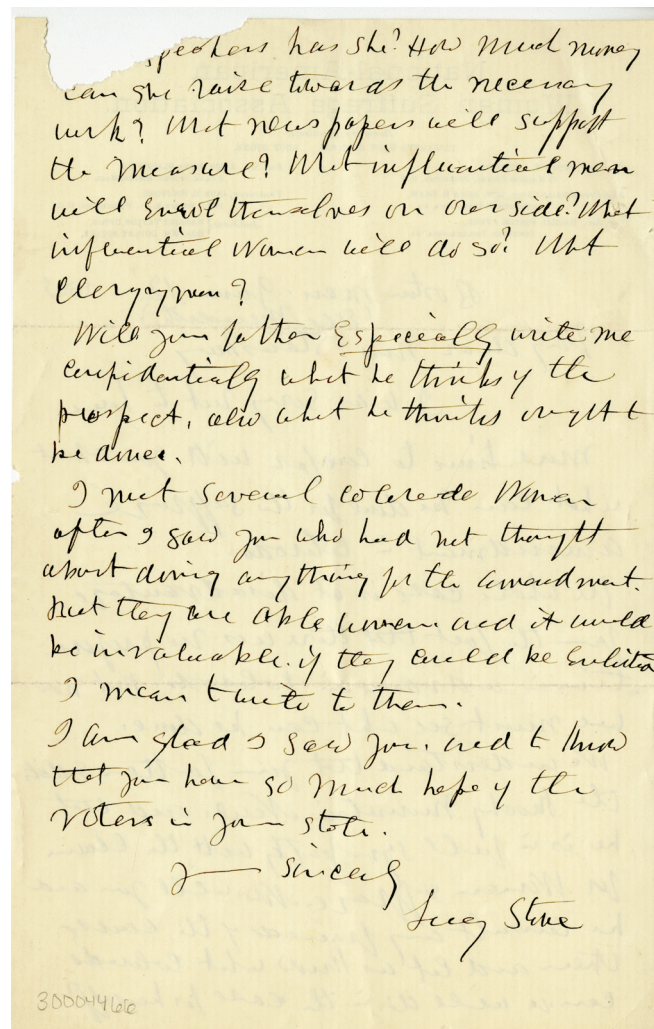 speakers has she? How much money
can she raise towards the necessary
work? What newspapers will support
the measure? What influential men
will enrol themselves on our side? What
influential women will do so? What
Clergymen?
Will your father Especially write me
confidentially what he thinks of the
prospect, also what he thinks ought to
be done.
I met several Colorado women
after I saw you who had not thought
about doing anything for the amendment.
But they are able women and it would
be invaluable if they could be Enlisted
I mean to write to them.
I am glad I saw you, and to know
that you have so much hope of the
voters in your state.
Yours sincerely
Lucy Stone
300044666